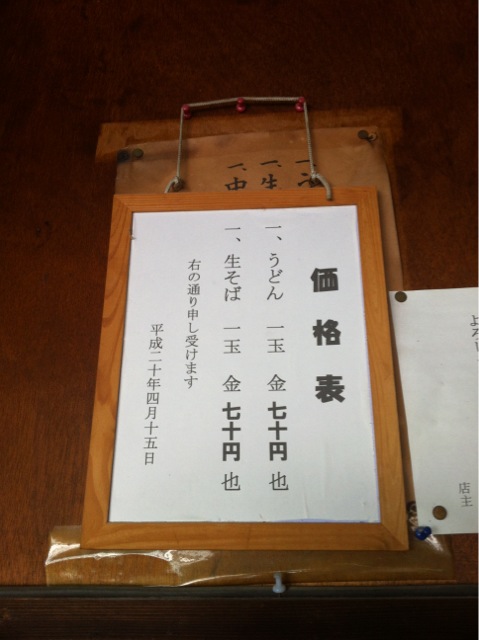 価格表
一、うどん 一玉 金 七十円 也
一、生そば 一玉 金 七十円 也
右の通り申し受けます
平成二十年四月十五日
店主
一、
一、生
一、中